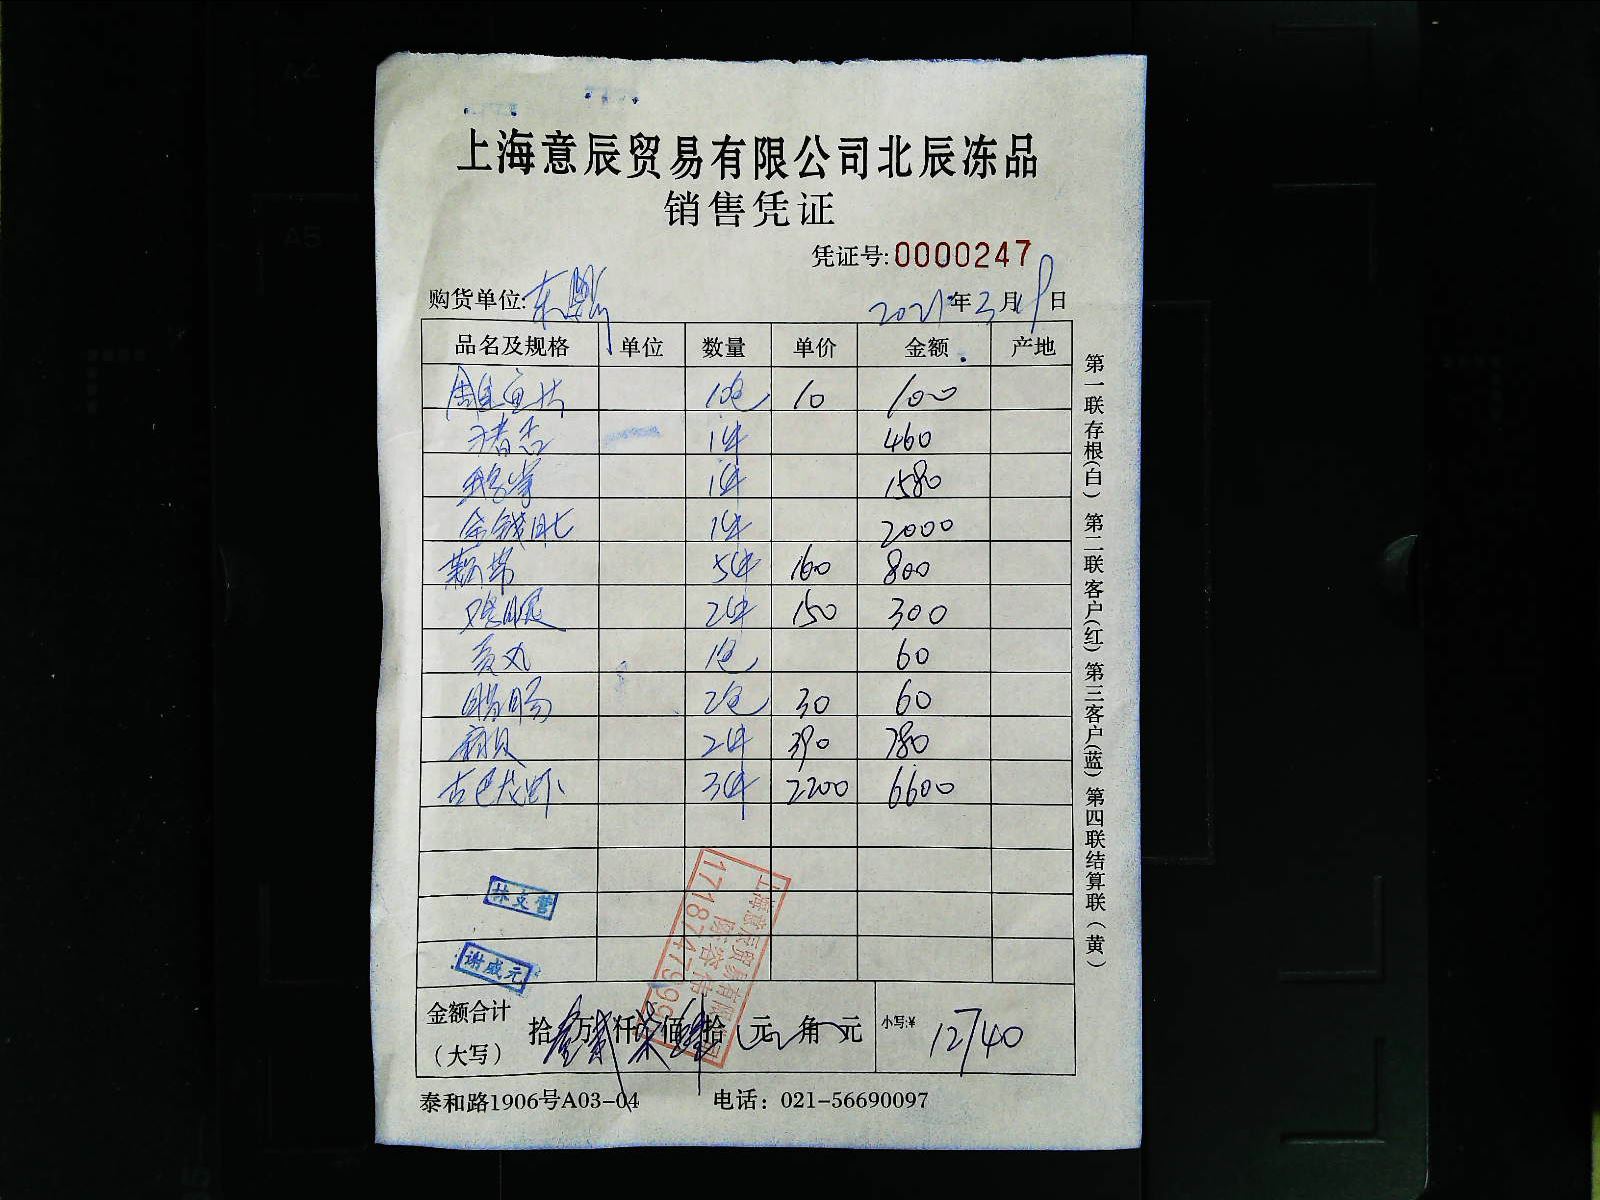 上海意辰贸易有限公司北辰冻品
销售凭证
凭证号:0000247
购货单位:东
2021年3月19日
品名及规格 单位 数量 单价 金额 产地
10包 10 100
猪舌 1件 460
鹅掌 1件 1580
金钱肚 1件 2000
5件 160 800
2件 150 300
贡丸 1包 60
腊肠 2包 30 60
2件 390 780
古巴龙虾 3件 2200 6600
林文营
谢威元
上海意辰贸易有限公司
17187479999
金额合计（大写） 拾壹万贰仟柒佰肆拾 元 角 元 小写:¥ 12740
泰和路1906号A03-04 电话：021-56690097
第一联存根(白) 第二联客户(红) 第三客户(蓝) 第四联结算联(黄)